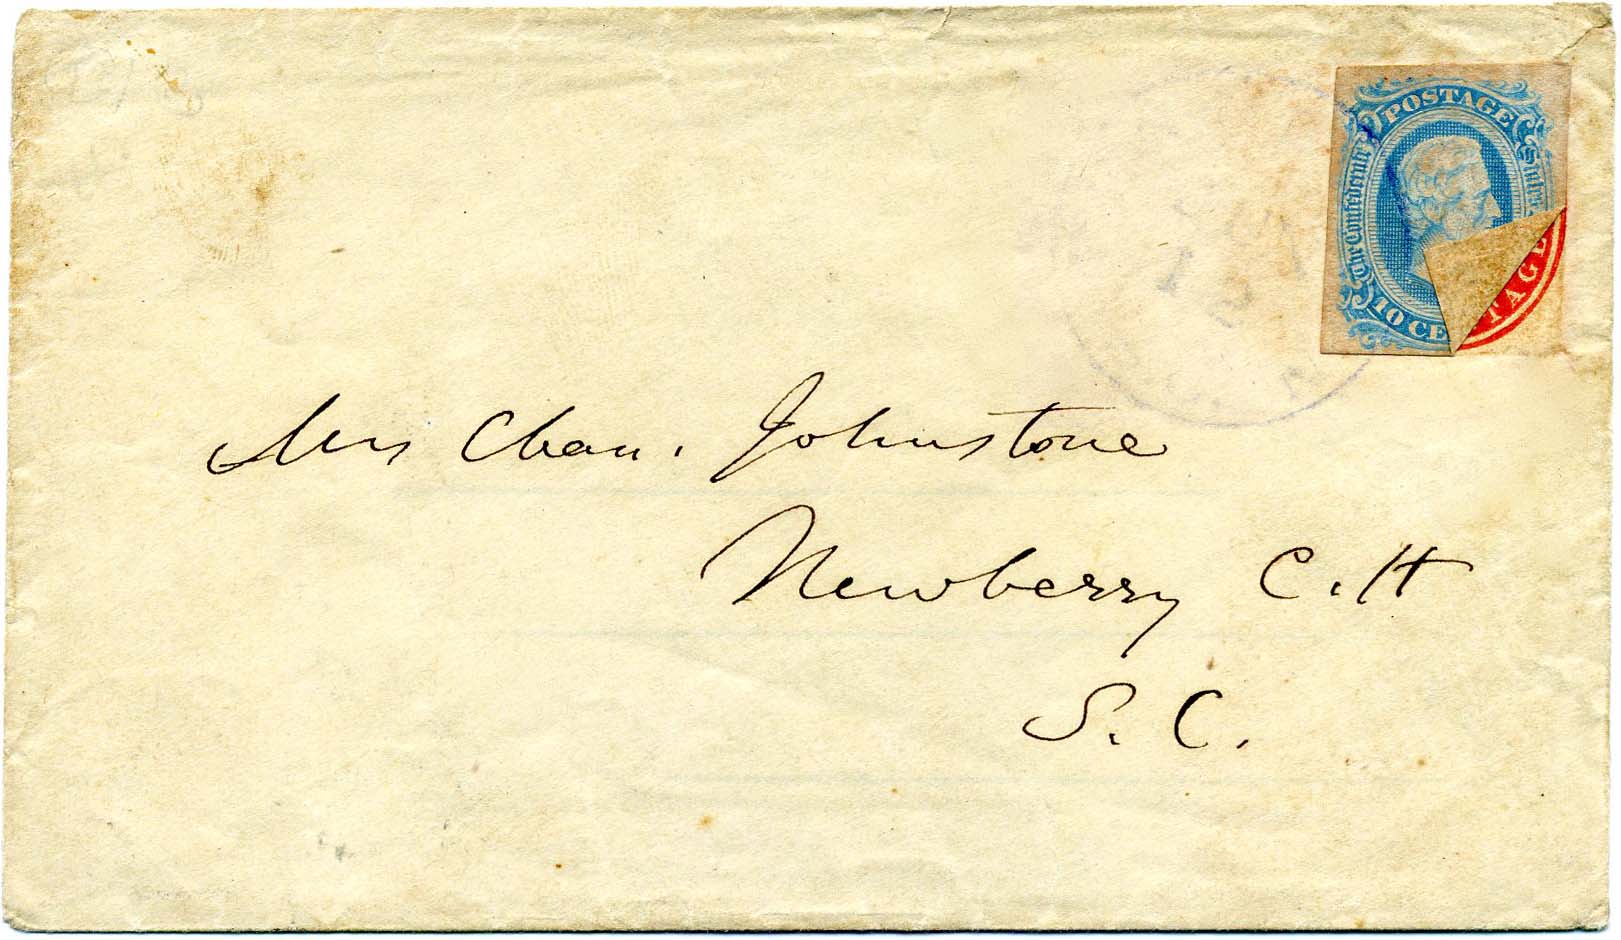 POSTAGE
The Confederate States
10 CE
TAGE
Mrs Chan. Johnstone
Newberry C.H
S. C.